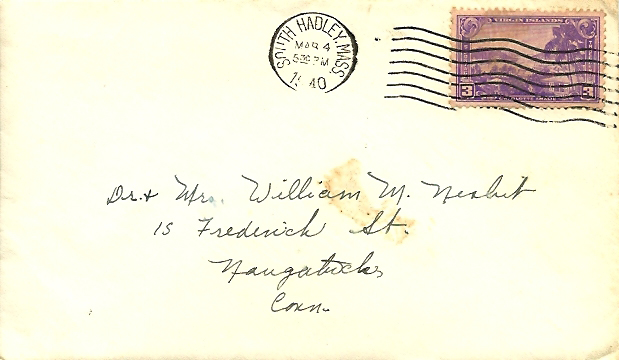 SOUTH HADLEY, MASS.
MAR 4
5 30 PM
1940
VIRGIN ISLANDS
3 3
Dr. & Mr. William M. Nesbit
15 Frederick St.
Naugatuck,
Conn.